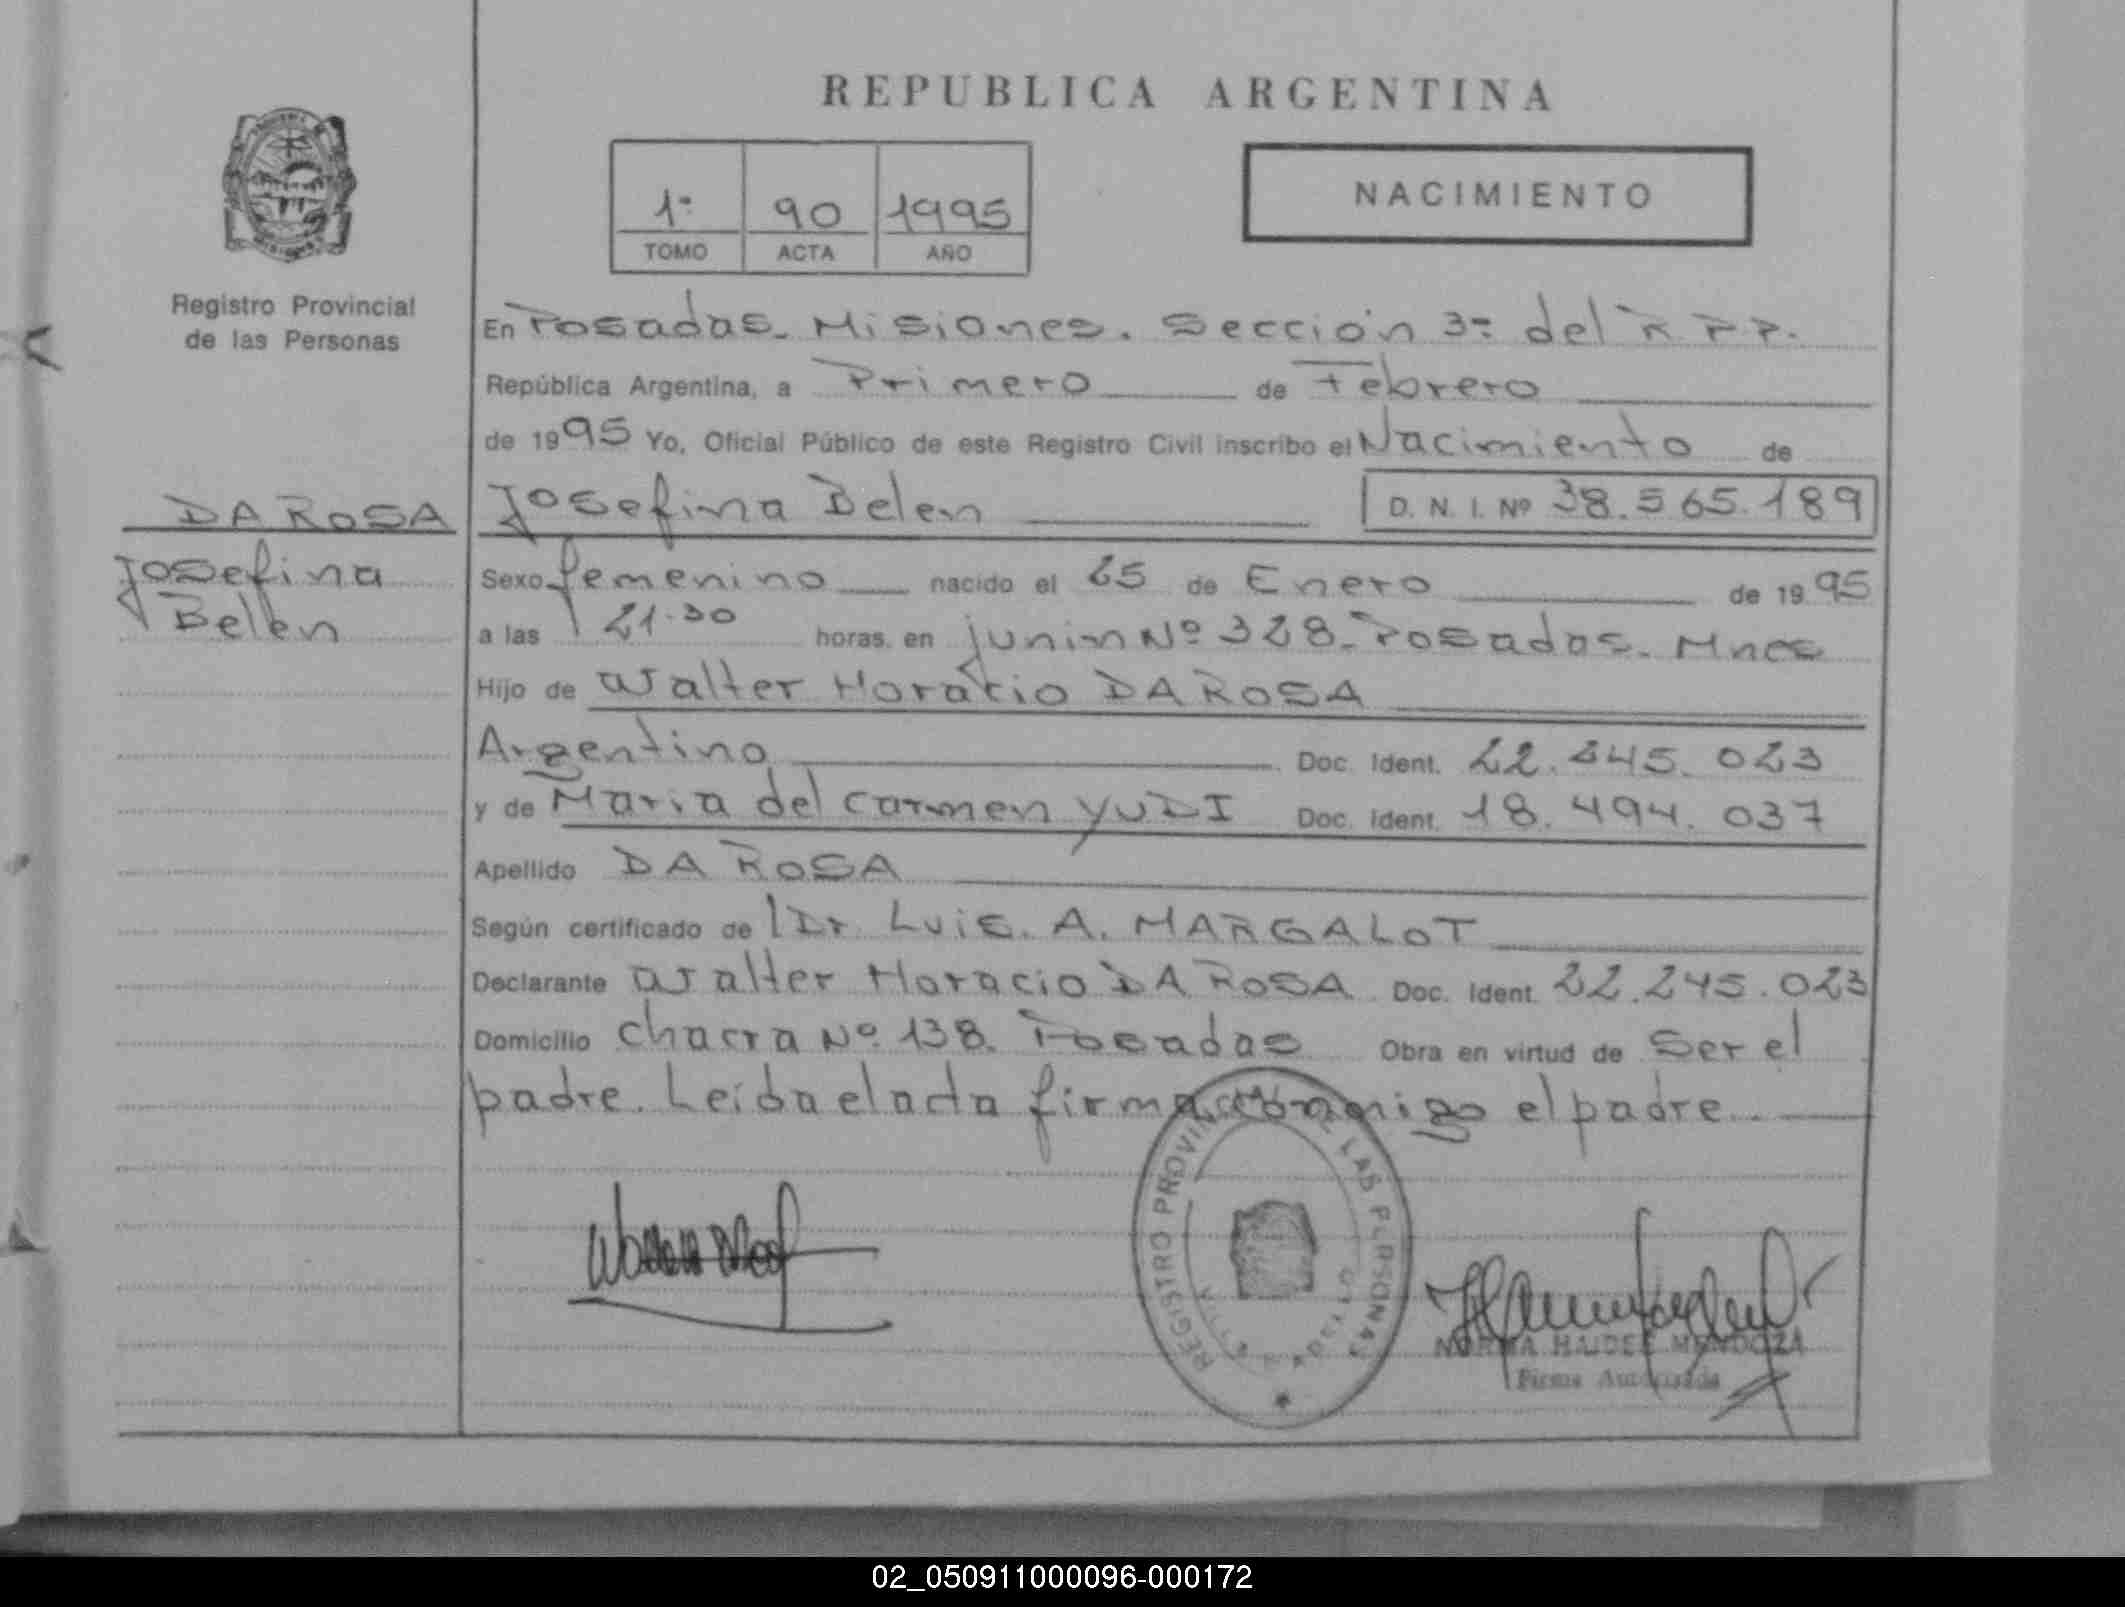 REPUBLICA ARGENTINA
1º 90 1995
TOMO ACTA AÑO
NACIMIENTO
Registro Provincial
de las Personas
DA ROSA
Josefina
Belen
En Posadas. Misiones. Sección 3ª del R.P.P.
República Argentina, a Primero de Febrero
de 1995 Yo, Oficial Público de este Registro Civil inscribo el Nacimiento de
Josefina Belen D. N. I. Nº 38.565.189
Sexo femenino nacido el 25 de Enero de 1995
a las 21.30 horas, en junin Nº 328. Posadas. Mnes
Hijo de Walter Horacio DA ROSA
Argentino Doc. Ident. 22.245.023
y de Maria del Carmen YUDI Doc. Ident. 18.494.037
Apellido DA ROSA
Según certificado de l Dr. Luis. A. MARGALOT
Declarante Walter Horacio DA ROSA Doc. Ident. 22.245.023
Domicilio chacra Nº 138. Posadas Obra en virtud de ser el
padre. Leída el acta firma conmigo el padre.
REGISTRO PROVINCIAL DE LAS PERSONAS
NORMA HAIDEE MENDOZA
Firma Autorizada
02_050911000096-000172